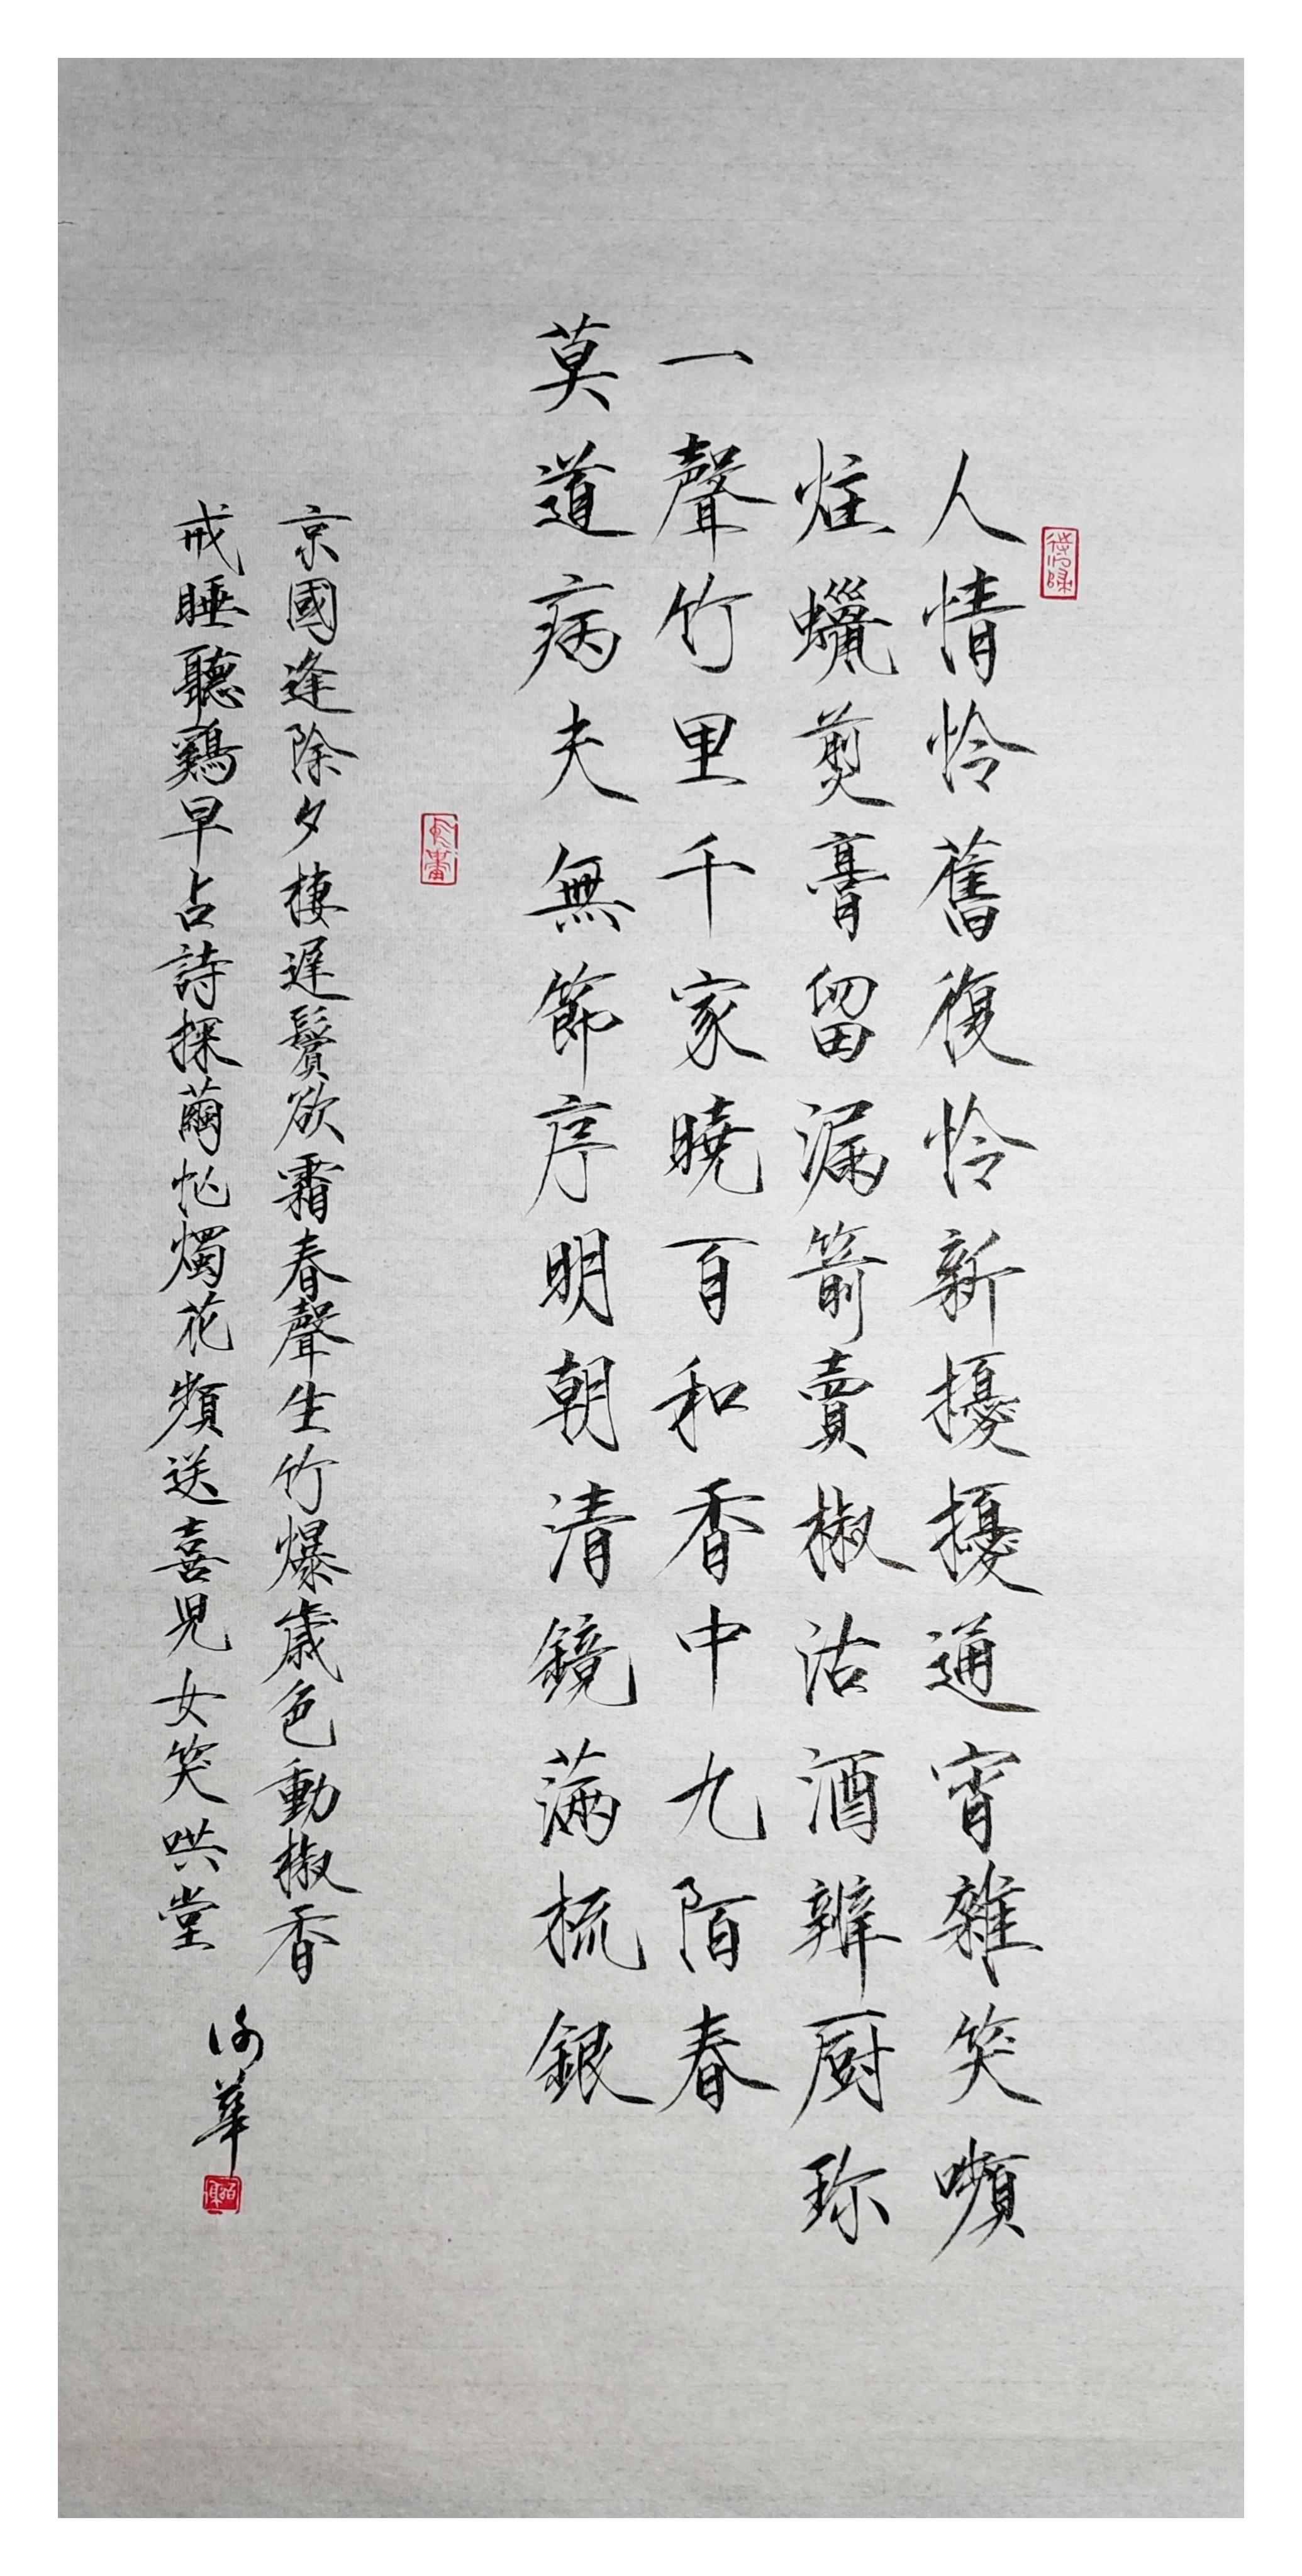 人情怜舊復怜新擾擾通宵雜笑嚬
炷蠟剪膏留漏箭賣椒沽酒辨厨珎
一聲竹里千家曉百和香中九陌春
莫道病夫無節序明朝清鏡滿梳銀
京國逢除夕棲遲鬢欲霜春聲生竹爆歲色動椒香
戒睡聽鷄早占詩探繭忙燭花頻送喜児女笑哄堂
華